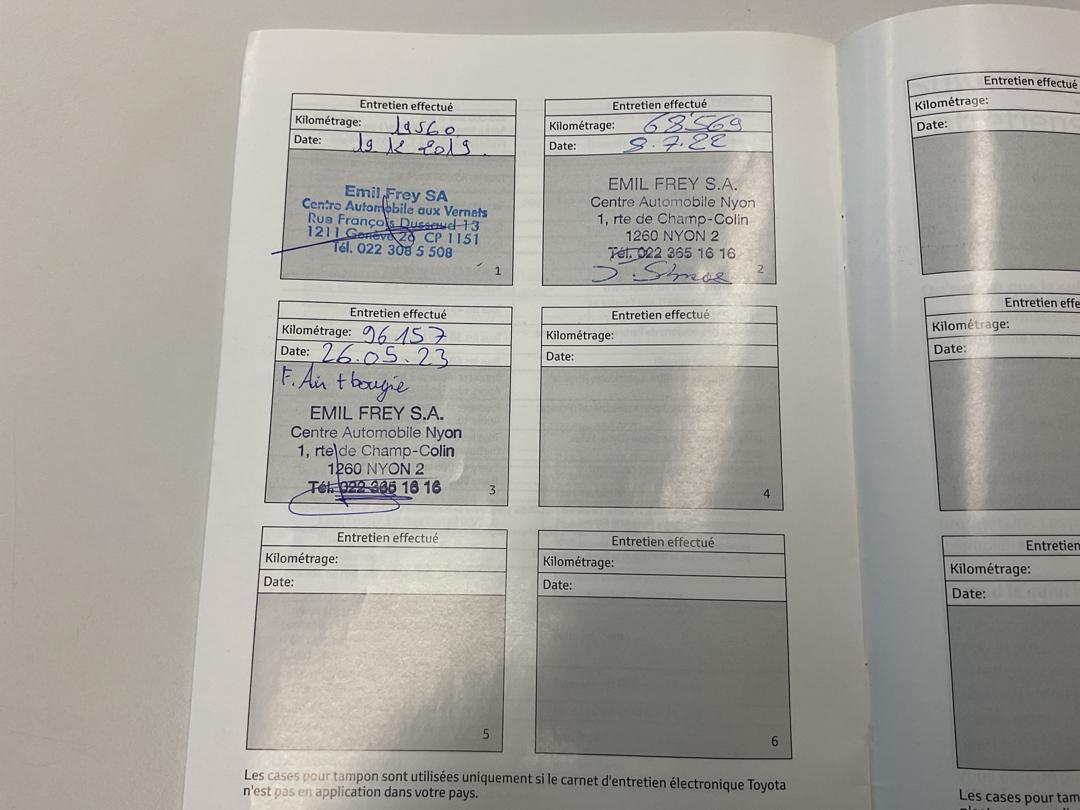 Entretien effectué
Kilométrage: 19560
Date: 19 12 2019.
Emil Frey SA
Centre Automobile aux Vernets
Rue François Dussaud 13
1211 Genève 26 CP 1151
Tél. 022 308 5 508
1
Entretien effectué
Kilométrage: 68569
Date: 8.7.22
EMIL FREY S.A.
Centre Automobile Nyon
1, rte de Champ-Colin
1260 NYON 2
Tél. 022 365 16 16
2
Entretien effectué
Kilométrage: 96157
Date: 26.05.23
F. Air + bougie
EMIL FREY S.A.
Centre Automobile Nyon
1, rte de Champ-Colin
1260 NYON 2
Tél. 022 365 16 16
3
Entretien effectué
Kilométrage:
Date:
4
Entretien effectué
Kilométrage:
Date:
5
Entretien effectué
Kilométrage:
Date:
6
Les cases pour tampon sont utilisées uniquement si le carnet d'entretien électronique Toyota
n'est pas en application dans votre pays.
Entretien effectué
Kilométrage:
Date:
Entretien effe
Kilométrage:
Date:
Entretien
Kilométrage:
Date:
Les cases pour tam